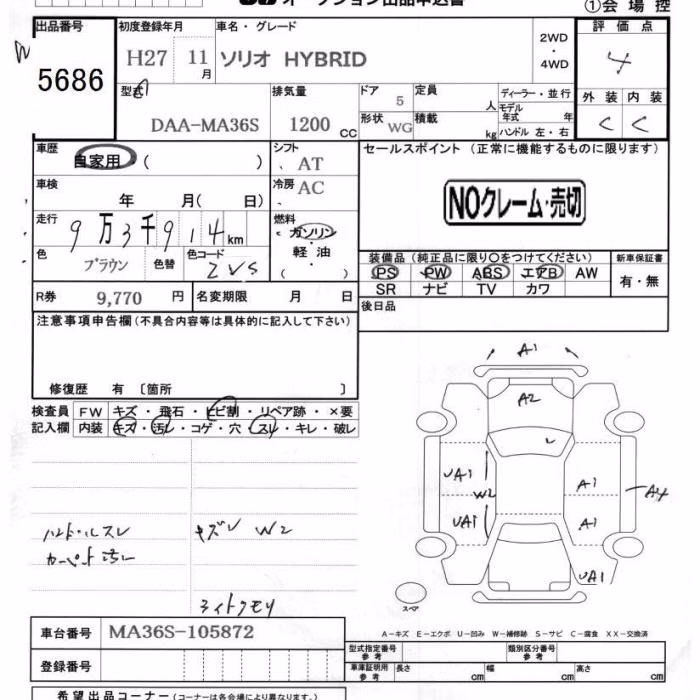 オークション出品申込書 ①会場控
出品番号 初度登録年月 車名・グレード 2WD・4WD 評価点
5686 H27 11月 ソリオ HYBRID 4
型式 排気量 ドア 定員 ディーラー・並行 外装 内装
DAA-MA36S 1200cc 5 人 モデル年式 年 C C
形状 WG 積載 kg ハンドル 左・右
車歴 自家用 ( ) シフト AT
セールスポイント (正常に機能するものに限ります)
車検 年 月( 日) 冷房 AC
NOクレーム・売切
走行 9万3千914km 燃料 ガソリン・軽油・( )
色 ブラウン 色替 色コード ZVS
装備品 (純正品に限り○をつけてください) 新車保証書
PS PW ABS エアB AW 有・無
SR ナビ TV カワ
R券 9,770円 名変期限 月 日
後日品
注意事項申告欄 (不具合内容等は具体的に記入して下さい)
修復歴 有 〔箇所 〕
検査員 FW キズ・飛石・ヒビ割・リペア跡・×要
記入欄 内装 キズ・汚レ・コゲ・穴・スレ・キレ・破レ
A1
A2
UA1 W2 A1 A4
UA1 A1
UA1
ハンドルスレ キズレ W2
カーペット汚レ
ライトクモリ
スペア
A-キズ E-エクボ U-凹み W-補修跡 S-サビ C-腐食 XX-交換済
車台番号 MA36S-105872
型式指定番号 参考 類別区分番号 参考
登録番号 車庫証明用 参考 長さ cm 幅 cm 高さ cm
希望出品コーナー (コーナーは各会場により異なります。)